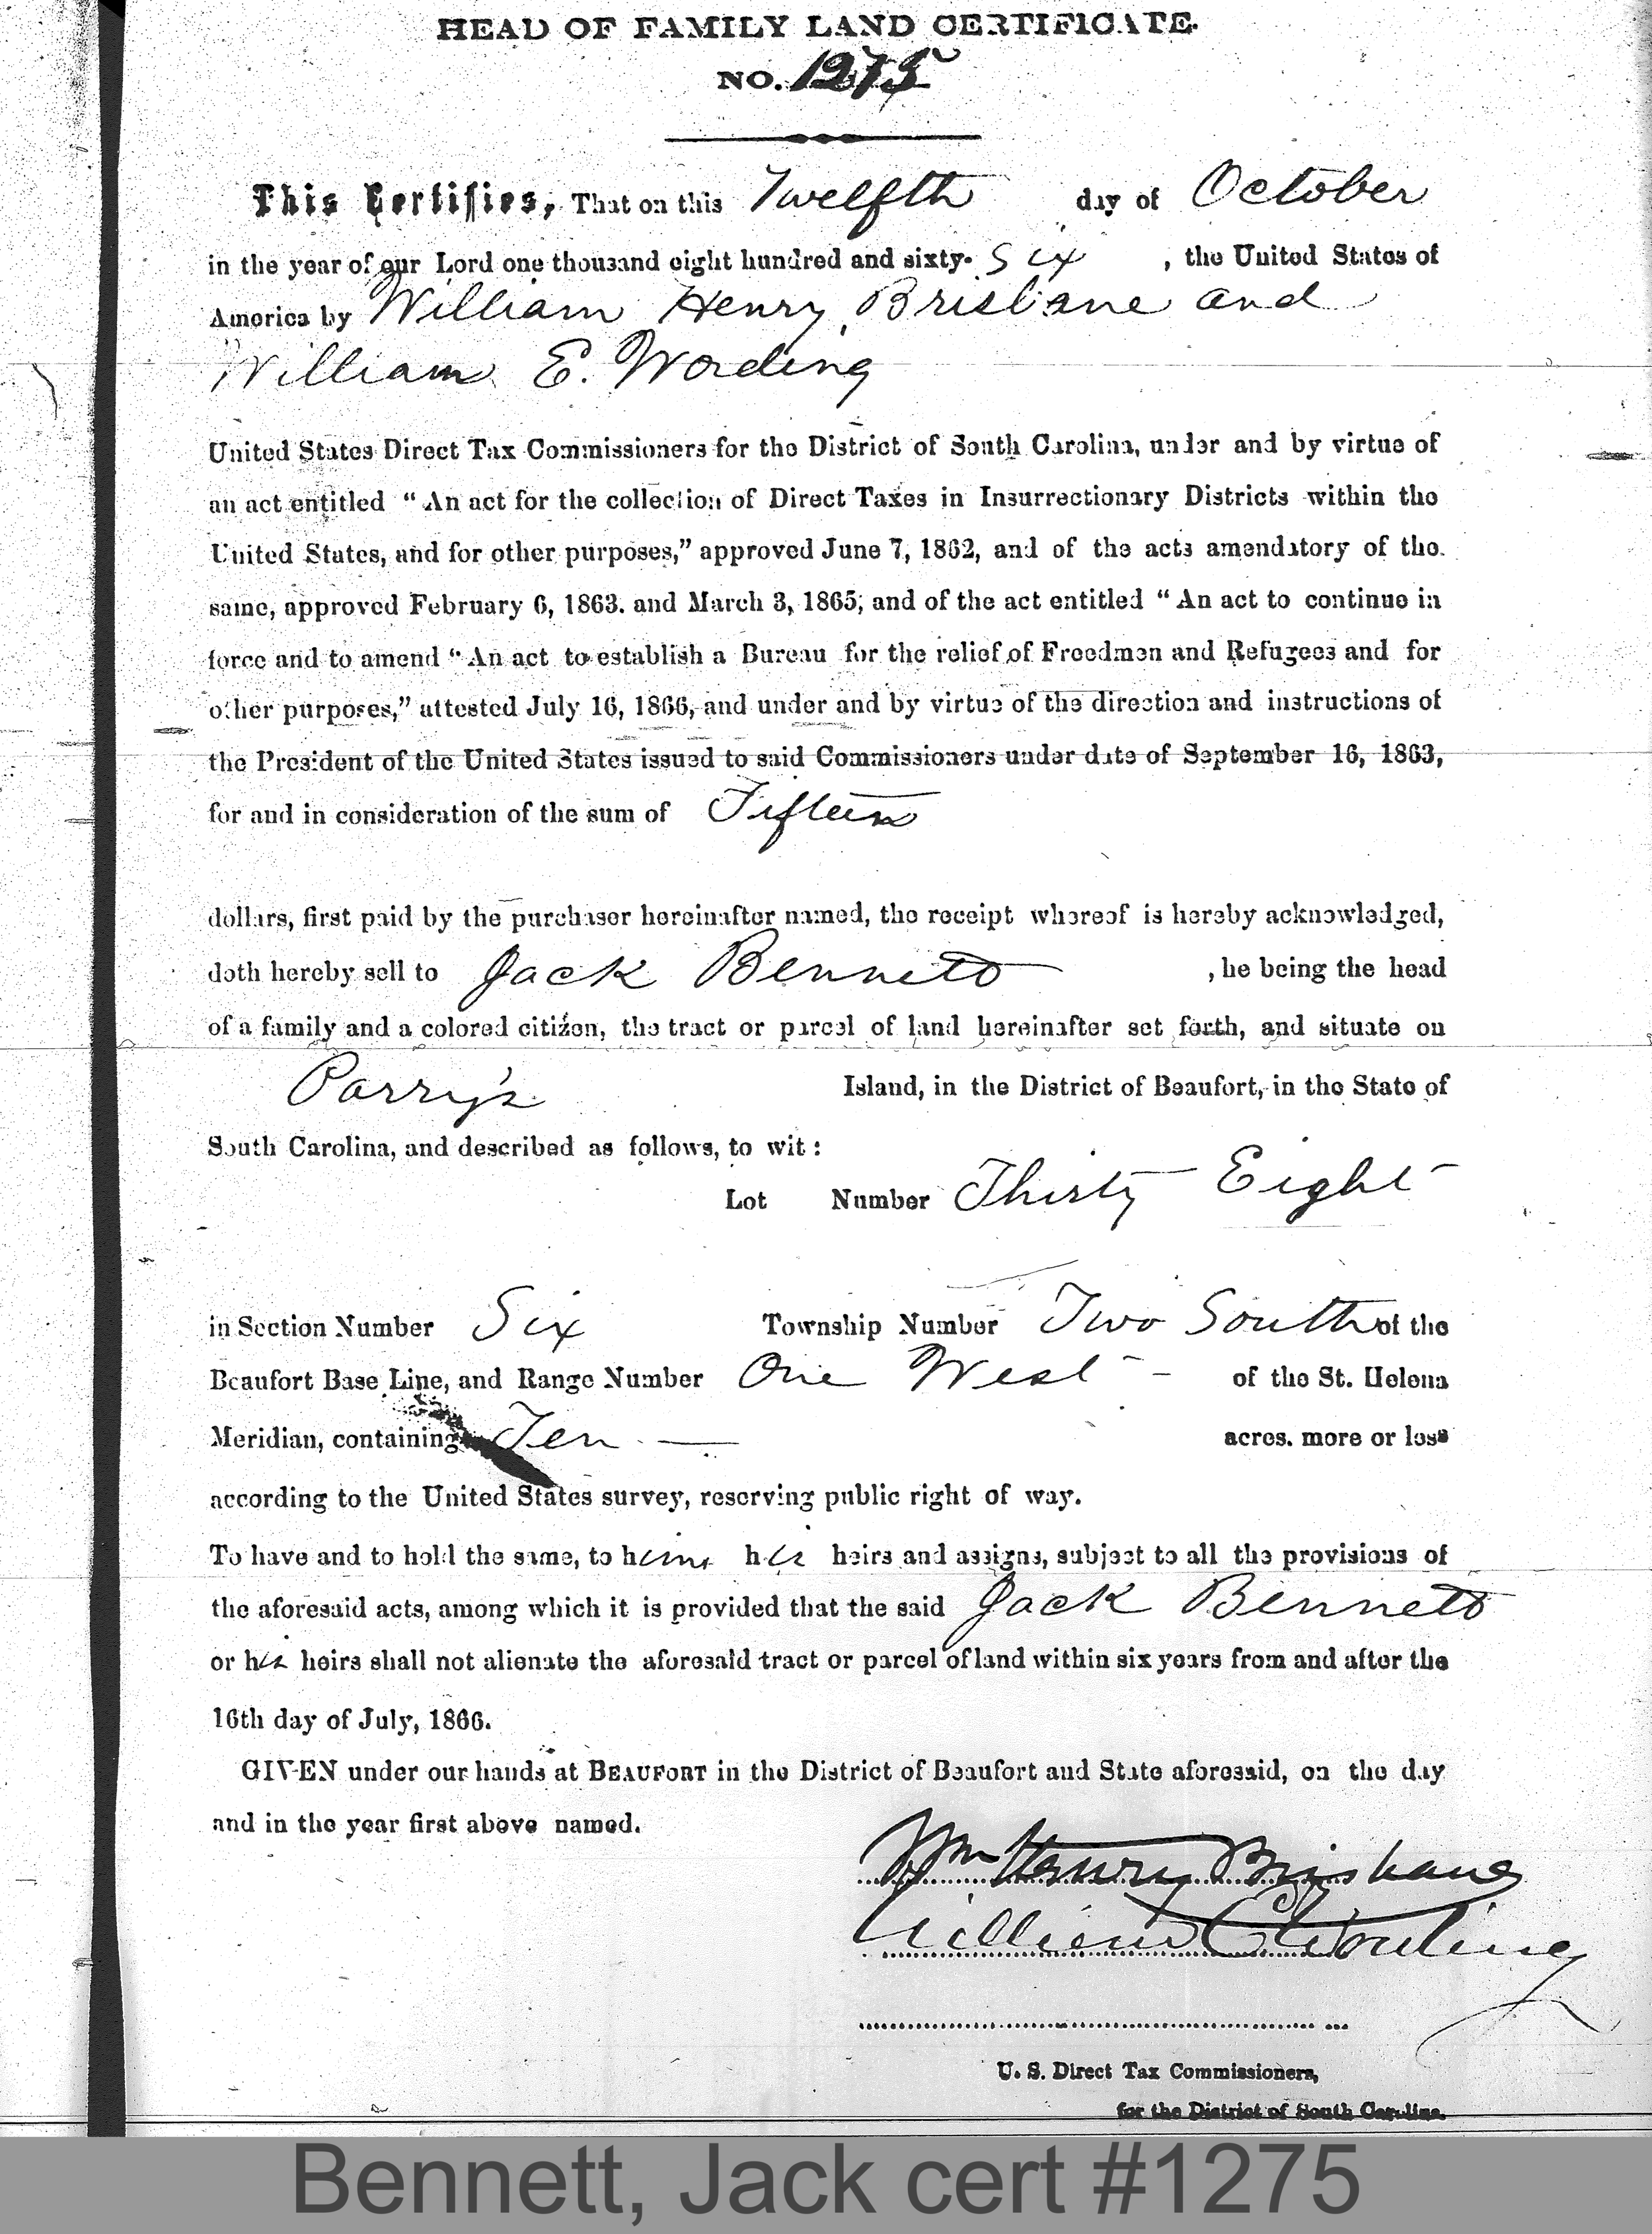 HEAD OF FAMILY LAND CERTIFICATE.
NO. 1275
This Certifies, That on this Twelfth day of October
in the year of our Lord one thousand eight hundred and sixty- Six , the United States of
America by William Henry Brisbane and
William E. Wording
United States Direct Tax Commissioners for the District of South Carolina, under and by virtue of
an act entitled “An act for the collection of Direct Taxes in Insurrectionary Districts within the
United States, and for other purposes,” approved June 7, 1862, and of the acts amendatory of the
same, approved February 6, 1863. and March 3, 1865; and of the act entitled “An act to continue in
force and to amend “An act to establish a Bureau for the relief of Freedmen and Refugees and for
other purposes,” attested July 16, 1866, and under and by virtue of the direction and instructions of
the President of the United States issued to said Commissioners under date of September 16, 1863,
for and in consideration of the sum of Fifteen
dollars, first paid by the purchaser hereinafter named, the receipt whereof is hereby acknowledged,
doth hereby sell to Jack Bennett , he being the head
of a family and a colored citizen, the tract or parcel of land hereinafter set forth, and situate on
Parry's Island, in the District of Beaufort, in the State of
South Carolina, and described as follows, to wit:
Lot Number Thirty Eight
in Section Number Six Township Number Two South of the
Beaufort Base Line, and Range Number One West - of the St. Helena
Meridian, containing Ten — acres. more or less
according to the United States survey, reserving public right of way.
To have and to hold the same, to him his heirs and assigns, subject to all the provisions of
the aforesaid acts, among which it is provided that the said Jack Bennett
or his heirs shall not alienate the aforesaid tract or parcel of land within six years from and after the
16th day of July, 1866.
GIVEN under our hands at BEAUFORT in the District of Beaufort and State aforesaid, on the day
and in the year first above named.
Wm Henry Brisbane
William E Wording
U. S. Direct Tax Commissioners,
for the District of South Carolina.
Bennett, Jack cert #1275